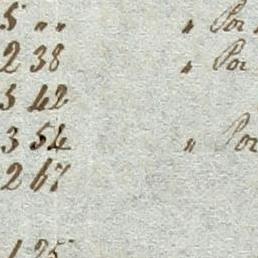 5 „ „ „ Por
2 38 „ Por
3 42
3 54 „ Por
2 67
1 25